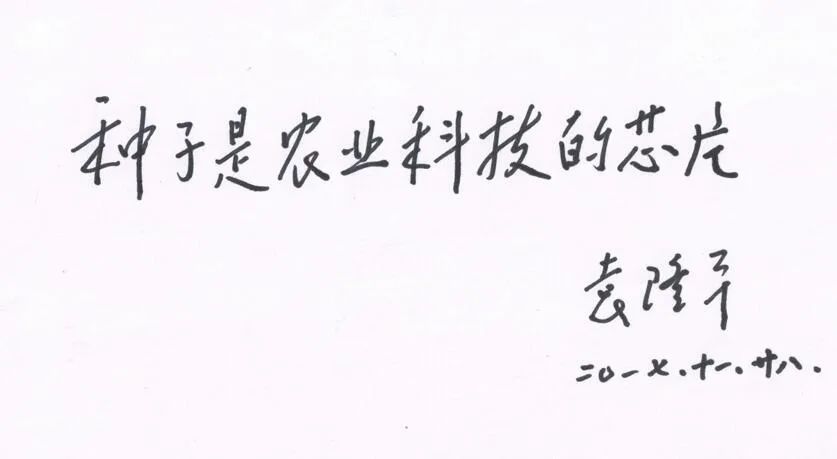 种子是农业科技的芯片
袁隆平
二〇一七.十一.廿八.